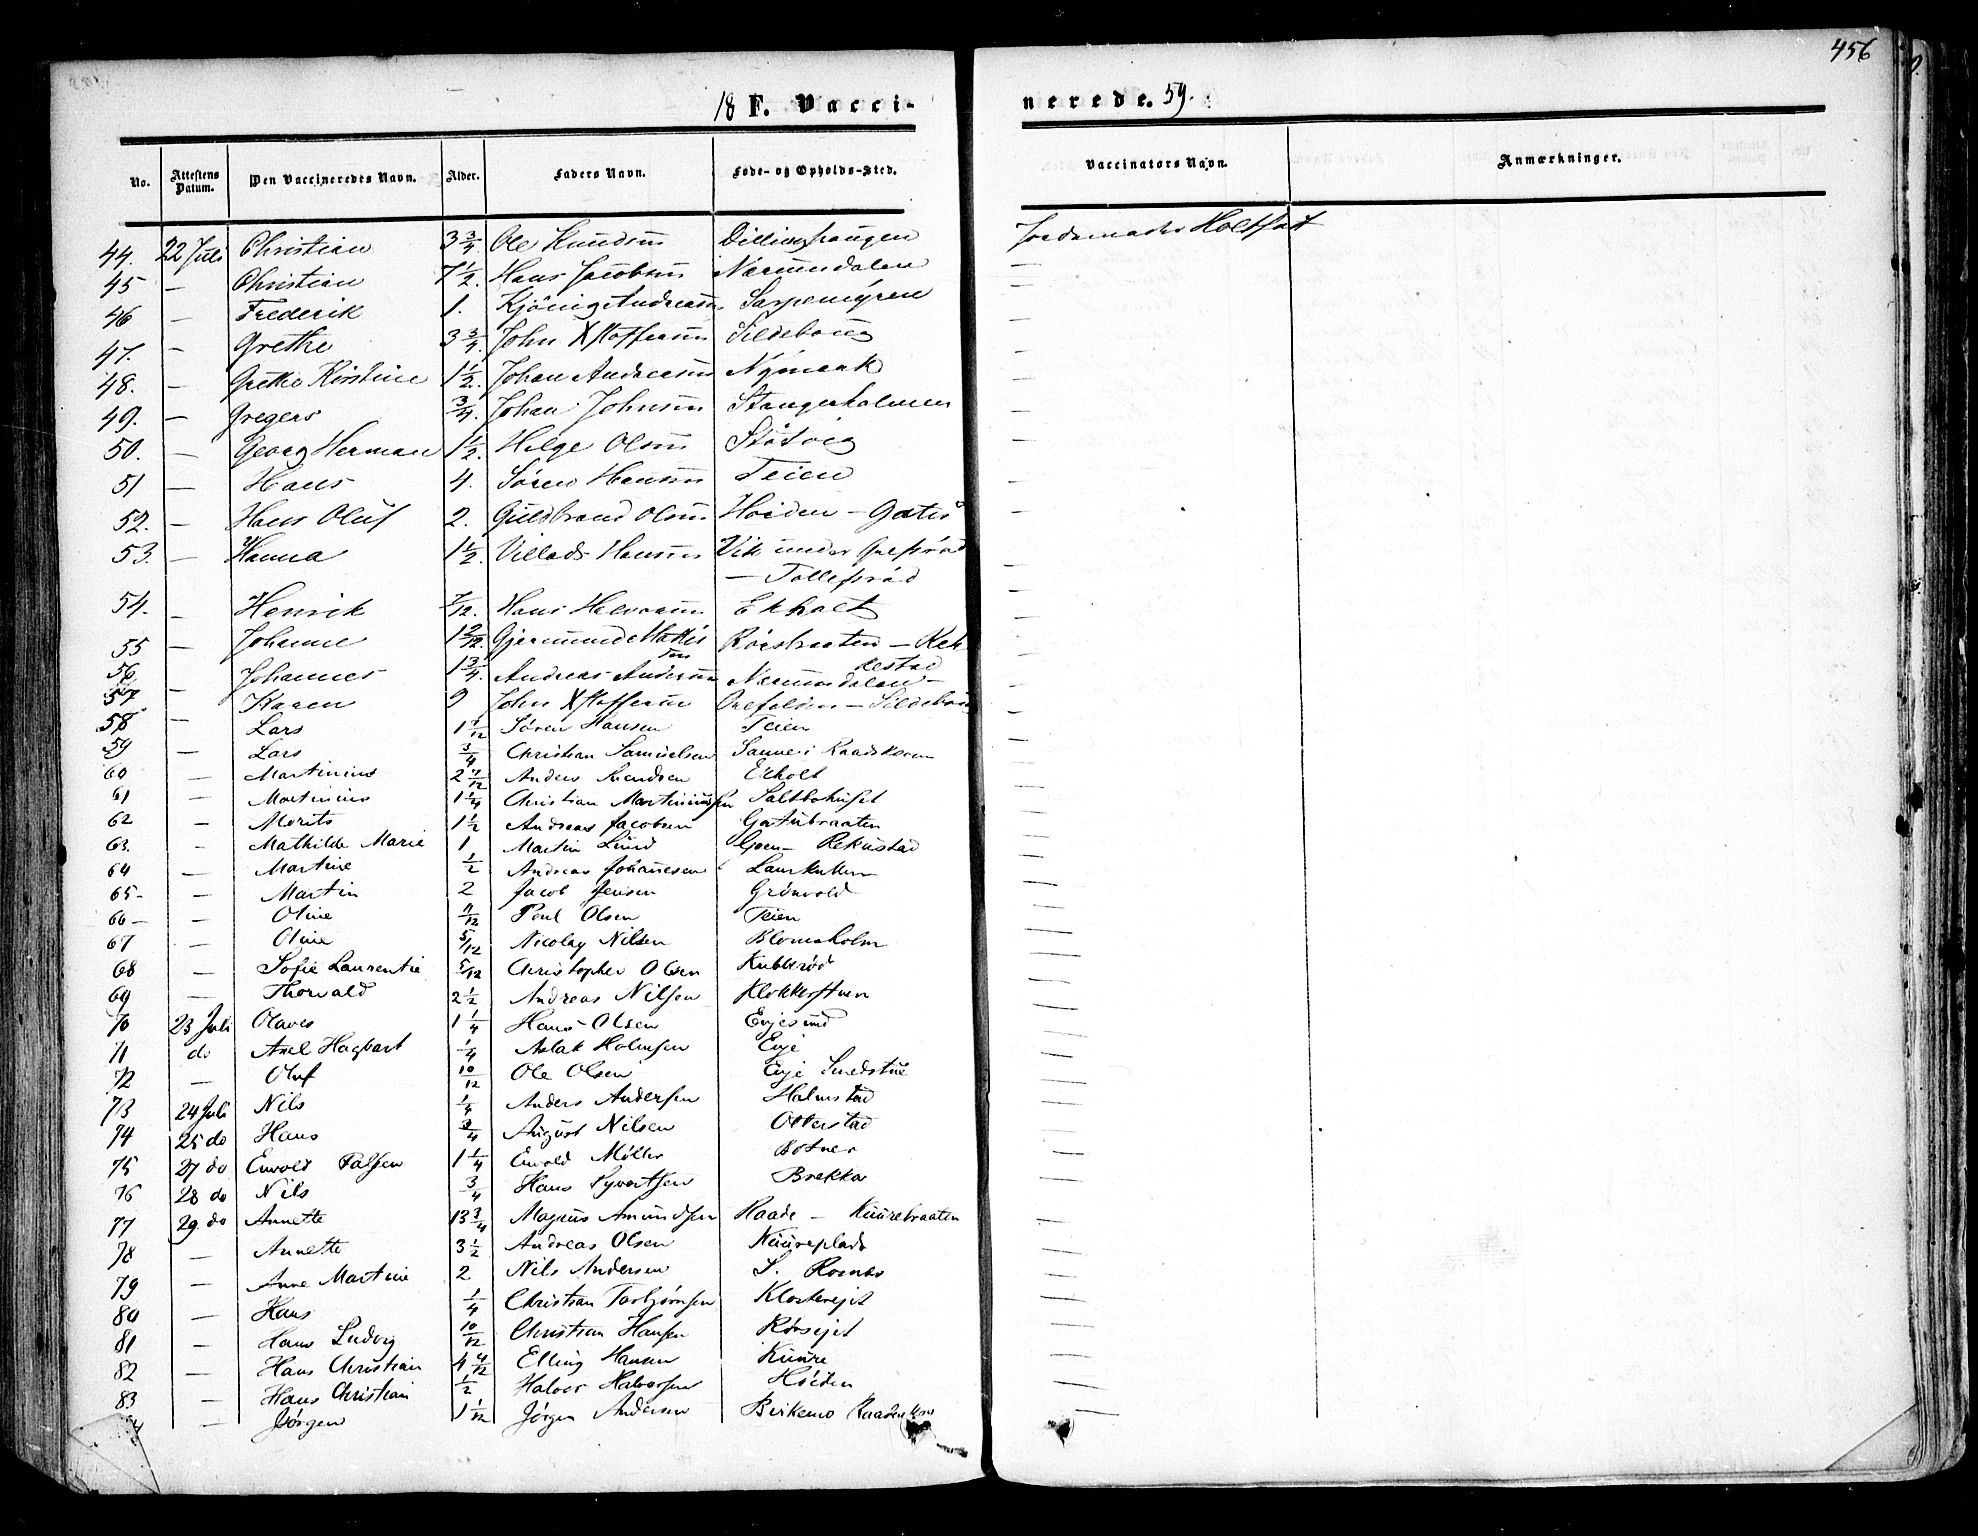 456
18 F. Vacci-
nerede. 59.
No. Attestens Datum. Den Vaccineredes Navn. Alder. Faders Navn. Føde- og Opholds-Sted. Vaccinators Navn. Anmærkninger.
44. 22 Juli Christian 3 3/4 Ole Knudsen Jordemoder Holtfodt
45 — Christian 7 1/2. Hans Jacobsen Narumdalen —
46 — Frederik 1. Kjönig Andreasen Sarpemÿren —
47. — Grethe 3 3/4. John Xstoffersen Sildebaug —
48. — Grethe Kirstine 1 1/2. Johan Andreasen Nÿmaak —
49. — Gregers 3/4. Johan Johnsen Stangerholmen —
50. — Georg Herman 1 1/2. Helge Olsen Støtvig —
51 — Hans 4. Søren Hansen Teien —
52. — Hans Oluf 2. Guldbrand Olsen Hoiden — Gatu —
53. — Hanna 1 1/2. Villads Hansen Vik under
— Tollefsrød
54. — Henrik 7/12. Hans Halvorsen Ekholt —
55 Johanne 1 2/12. Gjermund Mattis Roesbraaten — Rek- —
sen kestad
56 — Johannes 1 3/4. Andreas Andersen Narumdalen —
57 — Karen 9 John Xstoffersen — Sildebaug —
58 — Lars 1 1/12 Søren Hansen Teien —
59 — Lars 3/4 Christian Samuelsen Sanne i Raadskeren —
60 — Martinius 2 7/12 Anders Svendsen Ekholt —
61 — Martinius 1 1/4 Christian Martiniussen Saltbohuset —
62 — Morits 1 1/2 Andreas Jacobsen Gatubraaten —
63. — Mathilde Marie 1 Martin Lund Goen — Rekustad —
64 — Martine 1/2 Andreas Johannesen Laurkullen —
65 — — Martin 2 Jacob Jensen Grönvold —
66 — — Oline 7/12 Poul Olsen Teien —
67 — Oline 5/12 Nicolay Nilsen Blomsholm —
68 — Sofie Laurentie 5/12 Christopher Olsen Kubberød —
69 — Thorvald 2 1/2 Andreas Nilsen Klokkerstuen —
70 23 Juli Olaves 1 1/4 Hans Olsen Evjesund —
71 do Axel Hagbart 1/4 Aslak Holmsen Evje —
72 — Oluf 10/12 Ole Olsen Evje Smedstue —
73 24 Juli Nils 1/4 Anders Andersen Halmstad —
74 25 do Hans 3/4 August Nilsen Otterstad —
75 27 do Envold Palsen 1 1/4 Envold Möller Botner —
76 28 do Nils 3/4 Hans Syvertsen Brekka —
77 29. do Annette 13 3/4 Magnus Amundsen Raade — Kuurebraaten —
78 — Annette 3 1/2 Andreas Olsen Kuureplads —
79 — Anne Martine 2 Nils Andersen S. Rosnes —
80 — Hans 1/4 Christian Torbjörnsen Klosterejet —
81 — Hans Ludvig 10/12 Christian Hansen Rörsejet —
82 — Hans Christian 4 4/12 Elling Hansen Kuure —
83 — Hans Christian 1/2 Halvor Halvorsen Høiden —
— Jørgen 1 1/12 Jørgen Andersen Birkemo —